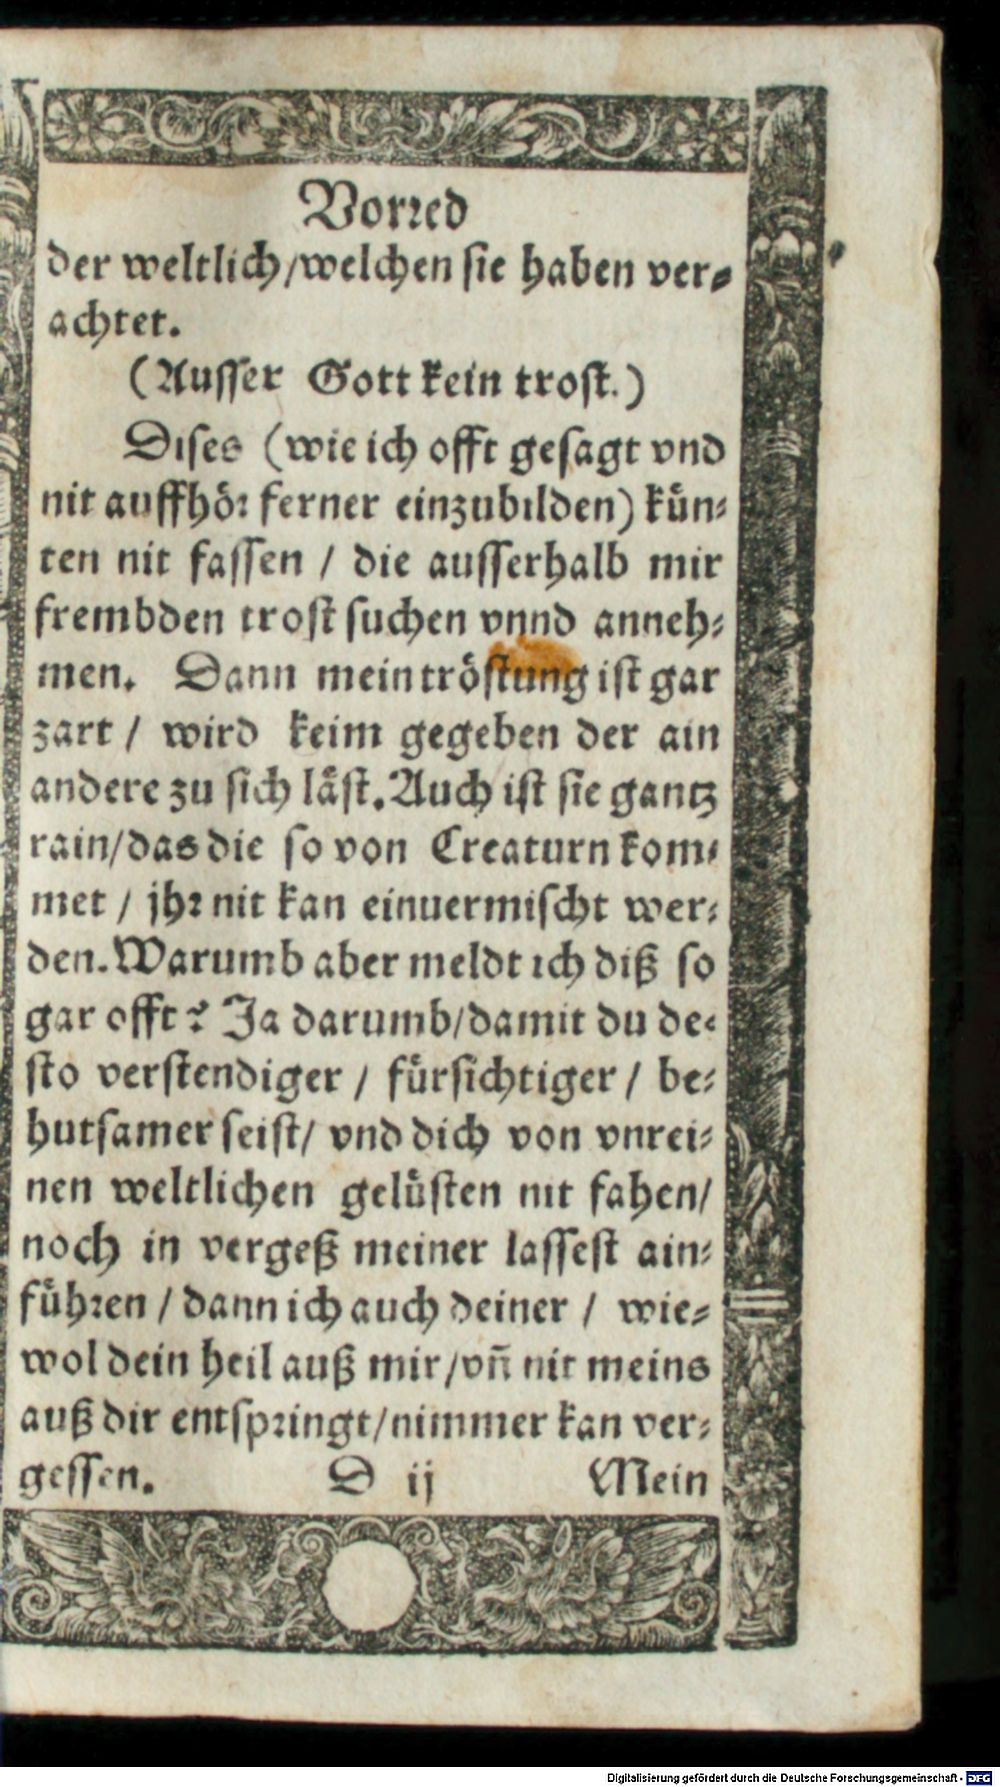 Vorred
der weltlich/welchen sie haben ver-
achtet.
(Ausser Gott kein trost.)
Dises (wie ich offt gesagt vnd
nit auffhör ferner einzubilden) kün-
ten nit fassen / die ausserhalb mir
frembden trost suchen vnnd anneh-
men. Dann mein tröstung ist gar
zart / wird keim gegeben der ain
andere zu sich läst. Auch ist sie gantz
rain/das die so von Creaturn kom-
met / jhr nit kan einuermischt wer-
den. Warumb aber meldt ich diß so
gar offt? Ja darumb/damit du de-
sto verstendiger / fürsichtiger / be-
hutsamer seist/ vnd dich von vnrei-
nen weltlichen gelüsten nit fahen/
noch in vergeß meiner lassest ain-
führen / dann ich auch deiner / wie-
wol dein heil auß mir/vñ nit meins
auß dir entspringt/nimmer kan ver-
gessen. D ij Mein
Digitalisierung gefördert durch die Deutsche Forschungsgemeinschaft - DFG